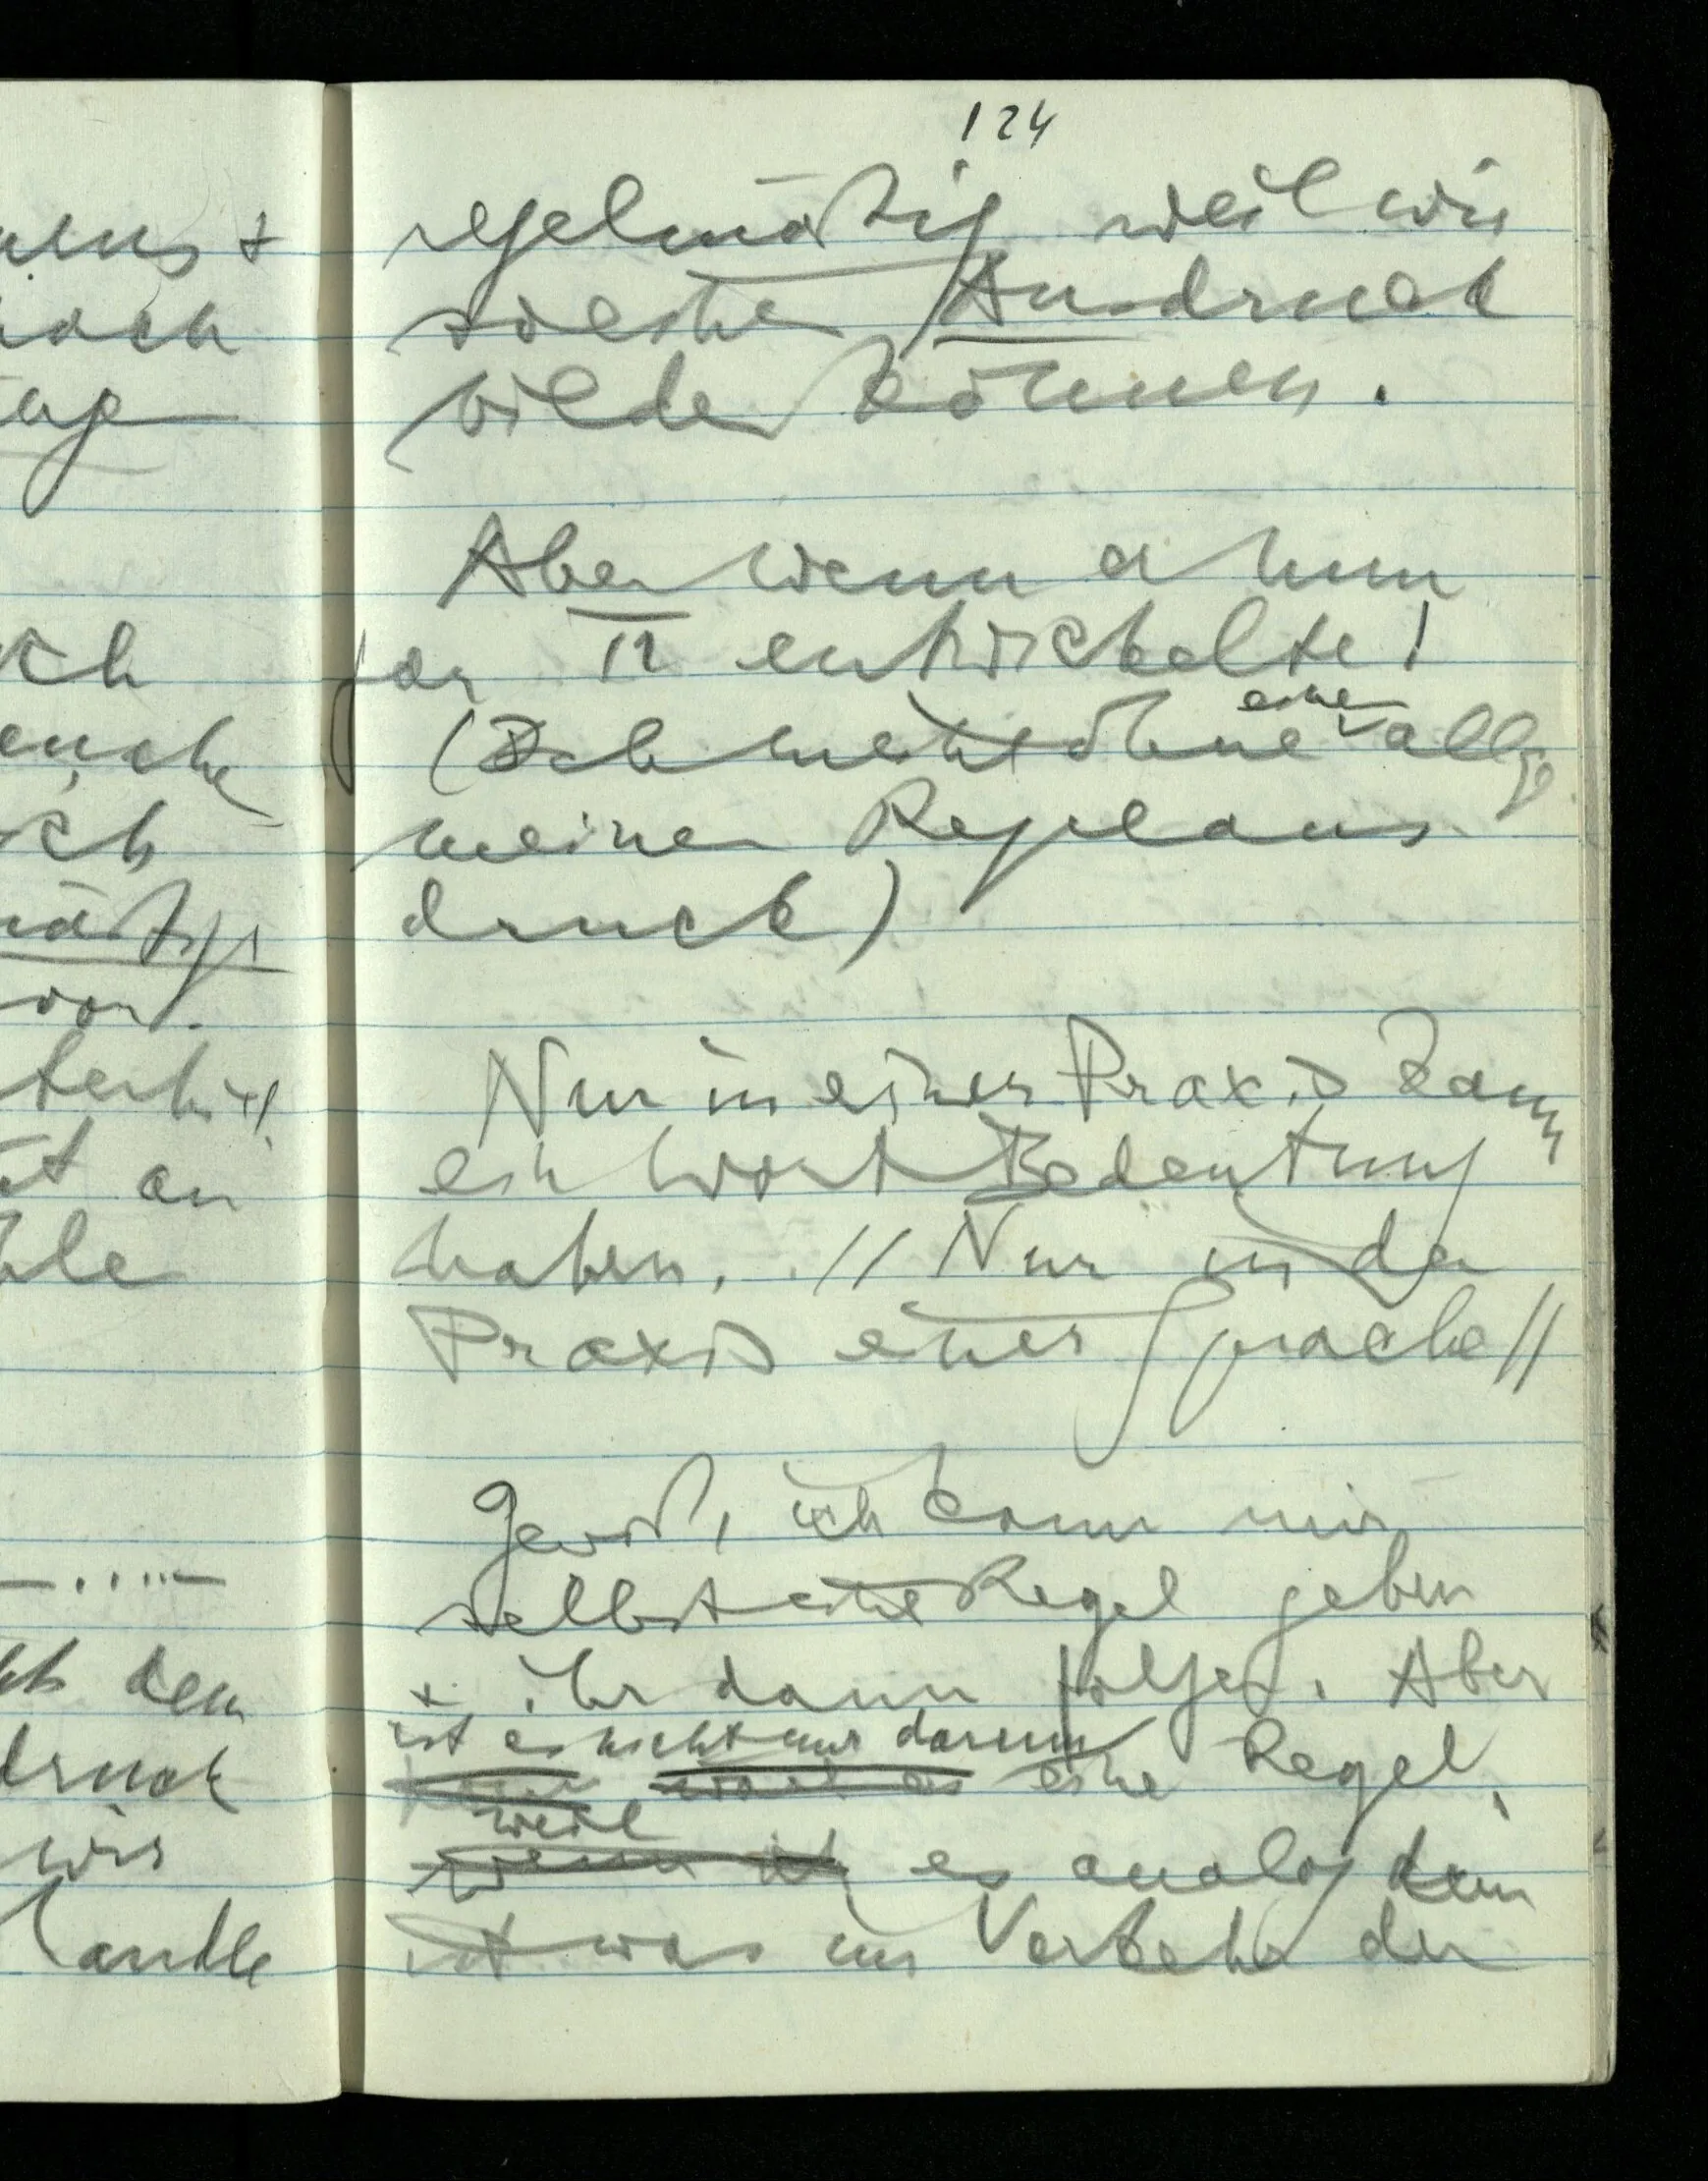 124
regelmäßig weil wir
solche Ausdruck
bilden können.
Aber wenn er nun
gar π entwickelte!
(Ich meine ohne einen allge
meinen Regelaus
druck)
Nur in einer Praxis kann
ein Wort Bedeutung
haben. // Nur in der
Praxis einer Sprache //
Gewiß, ich kann mir
selbst eine Regel geben
+ ihr dann folgen. Aber
ist es nicht nur darum
eine Regel,
weil
wenn ich es analog dem
ist was im Verkehr der
och
age
ich
sch
mäßige
vor.
an
dem
druck
wir